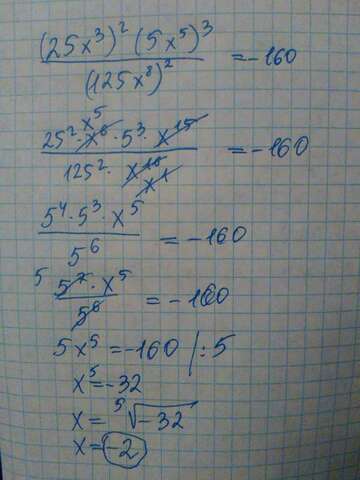 (25x³)² (5x⁵)³ / (125x⁸)² = -160
25² · x⁶ x⁵ · 5³ · x¹⁵ / 125² · x¹⁶ x 1 = -160
5⁴ · 5³ · x⁵ / 5⁶ = -160
5 5⁷ · x⁵ / 5⁶ = -160
5x⁵ = -160 | : 5
x⁵ = -32
x = ⁵√-32
x = -2